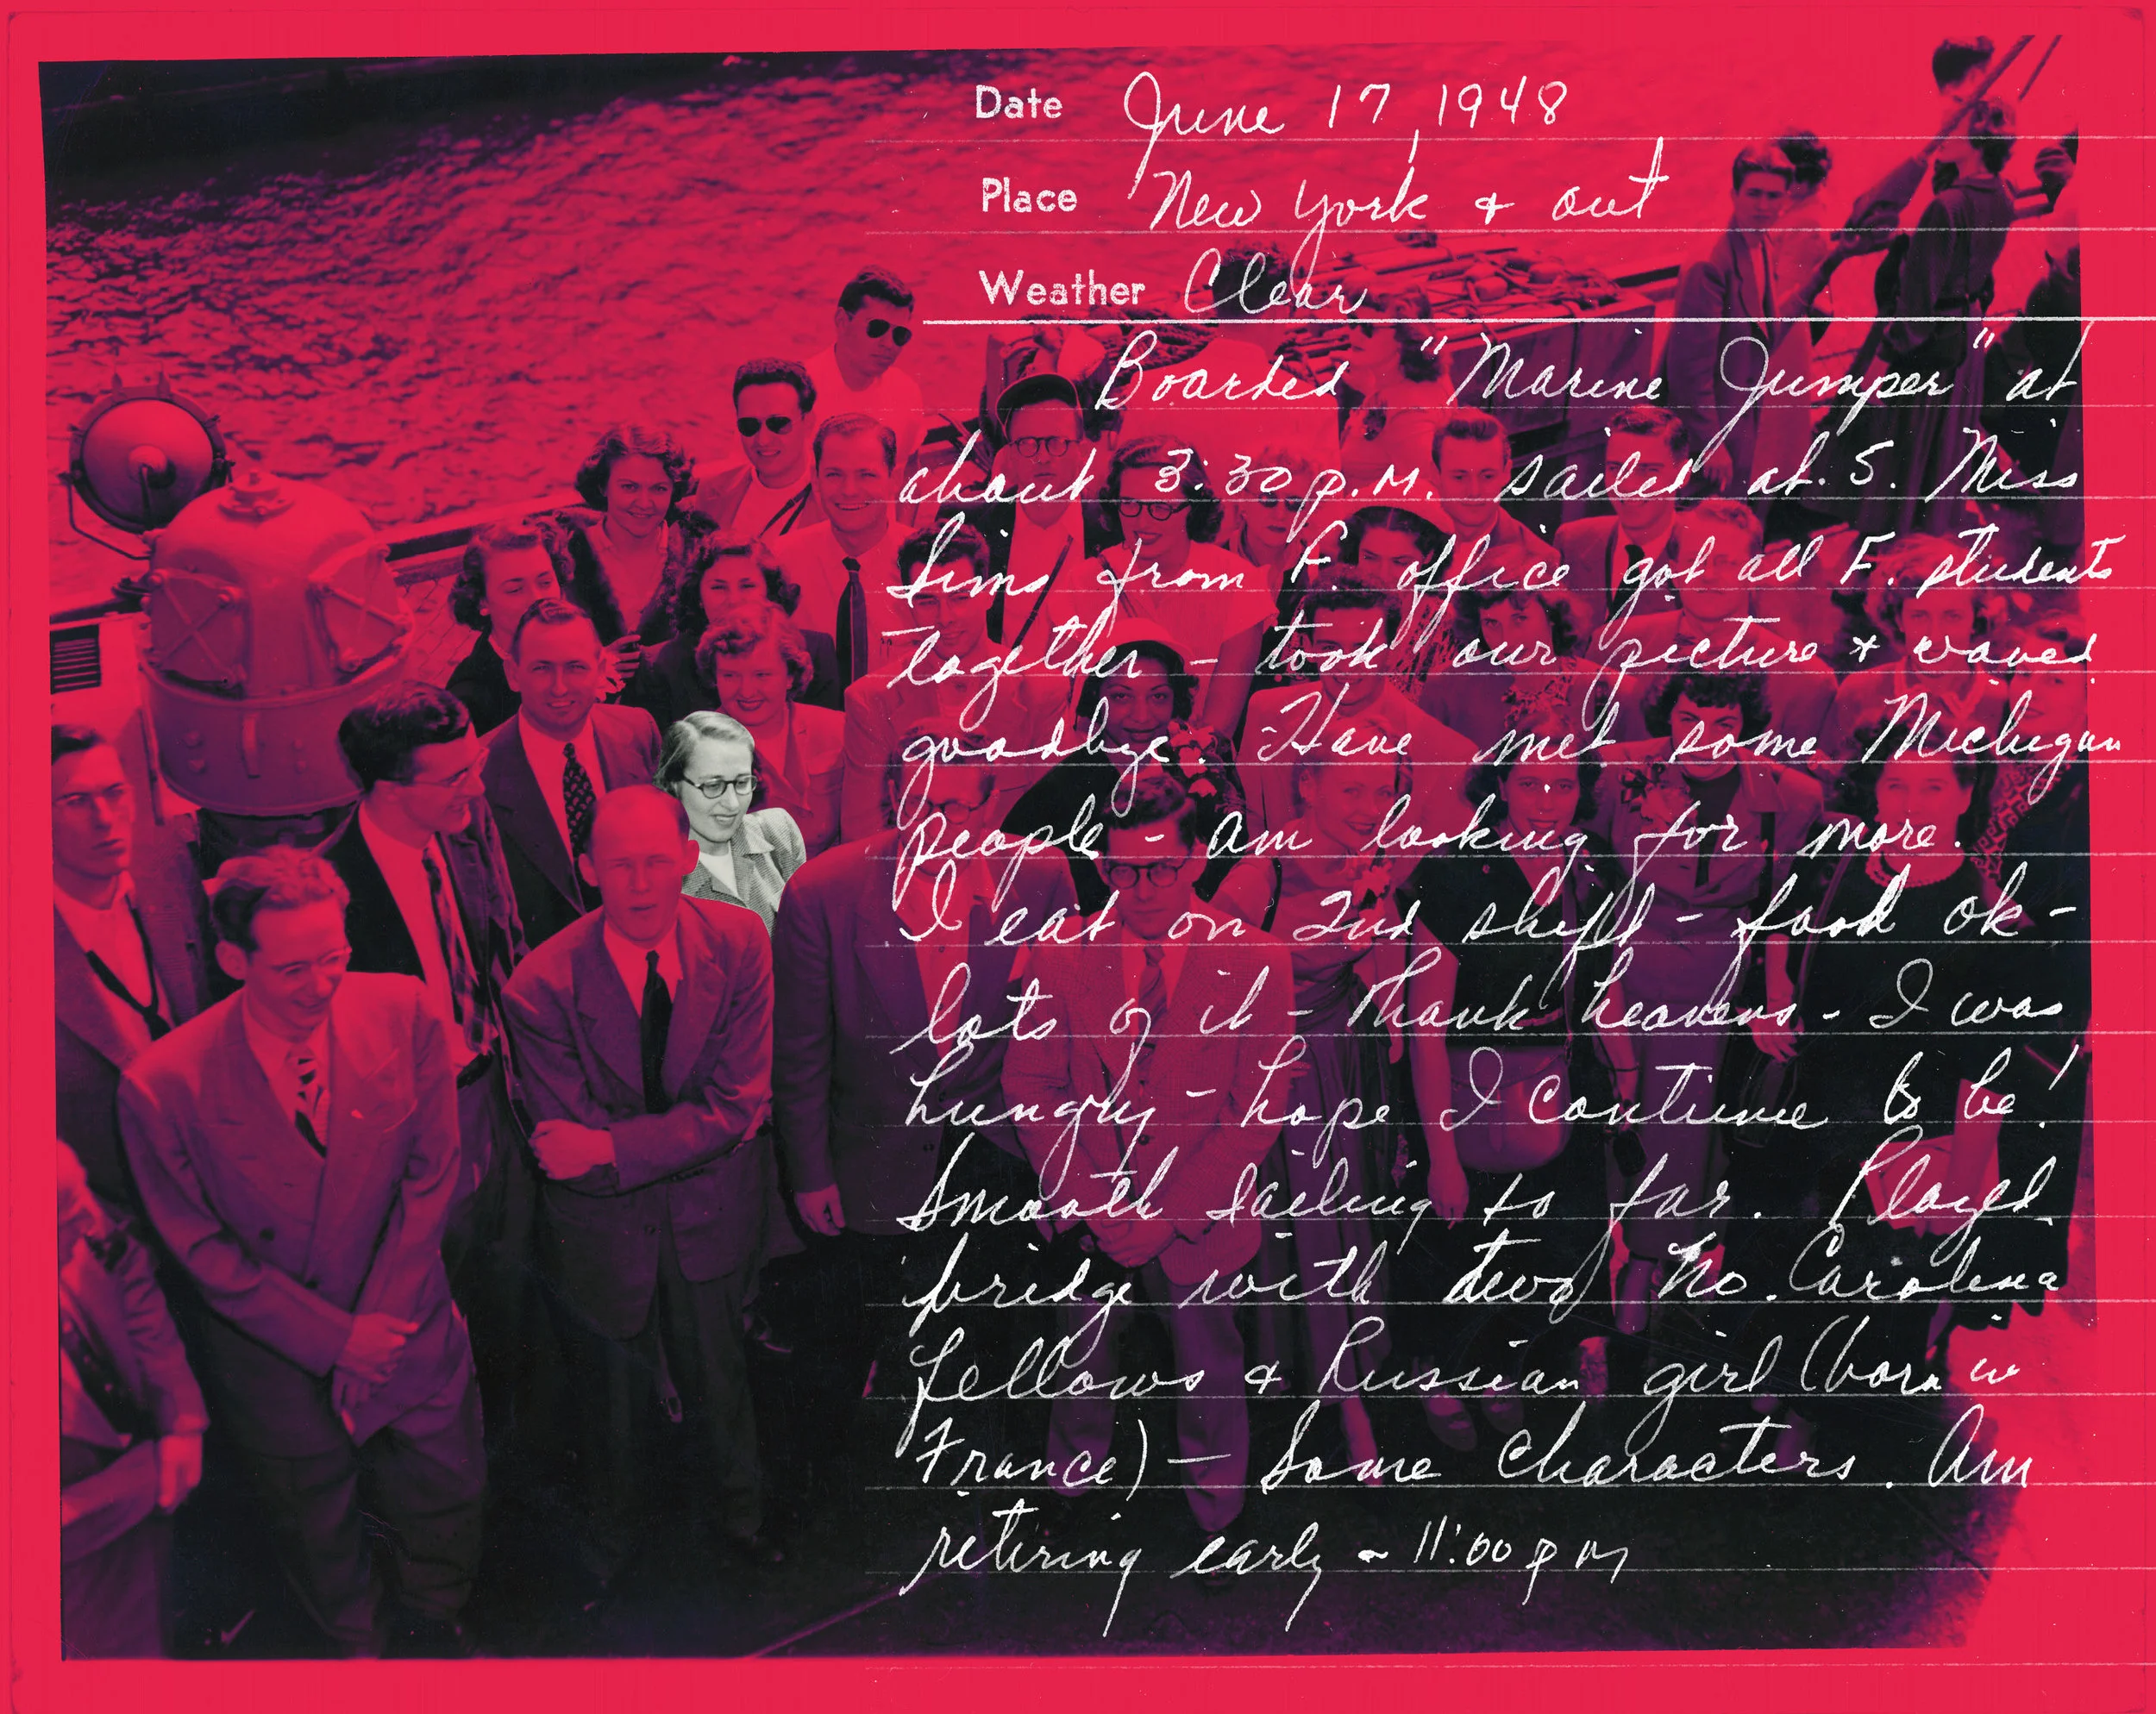 Date June 17, 1948
Place New York & out
Weather Clear
Boarded "Marine Jumper" at
about 3:30 p.M. sailed at 5. Miss
Sims from F. office got all F. students
together – took our picture & waved
goodbye. Have met some Michigan
people – am looking for more.
I eat on 2nd shift – food ok –
lots of it – thank heavens – I was
hungry – hope I continue to be!
Smooth sailing so far. Played
bridge with two No. Carolina
fellows & Russian girl (born in
France) – Some characters. Am
retiring early – 11:00 pm